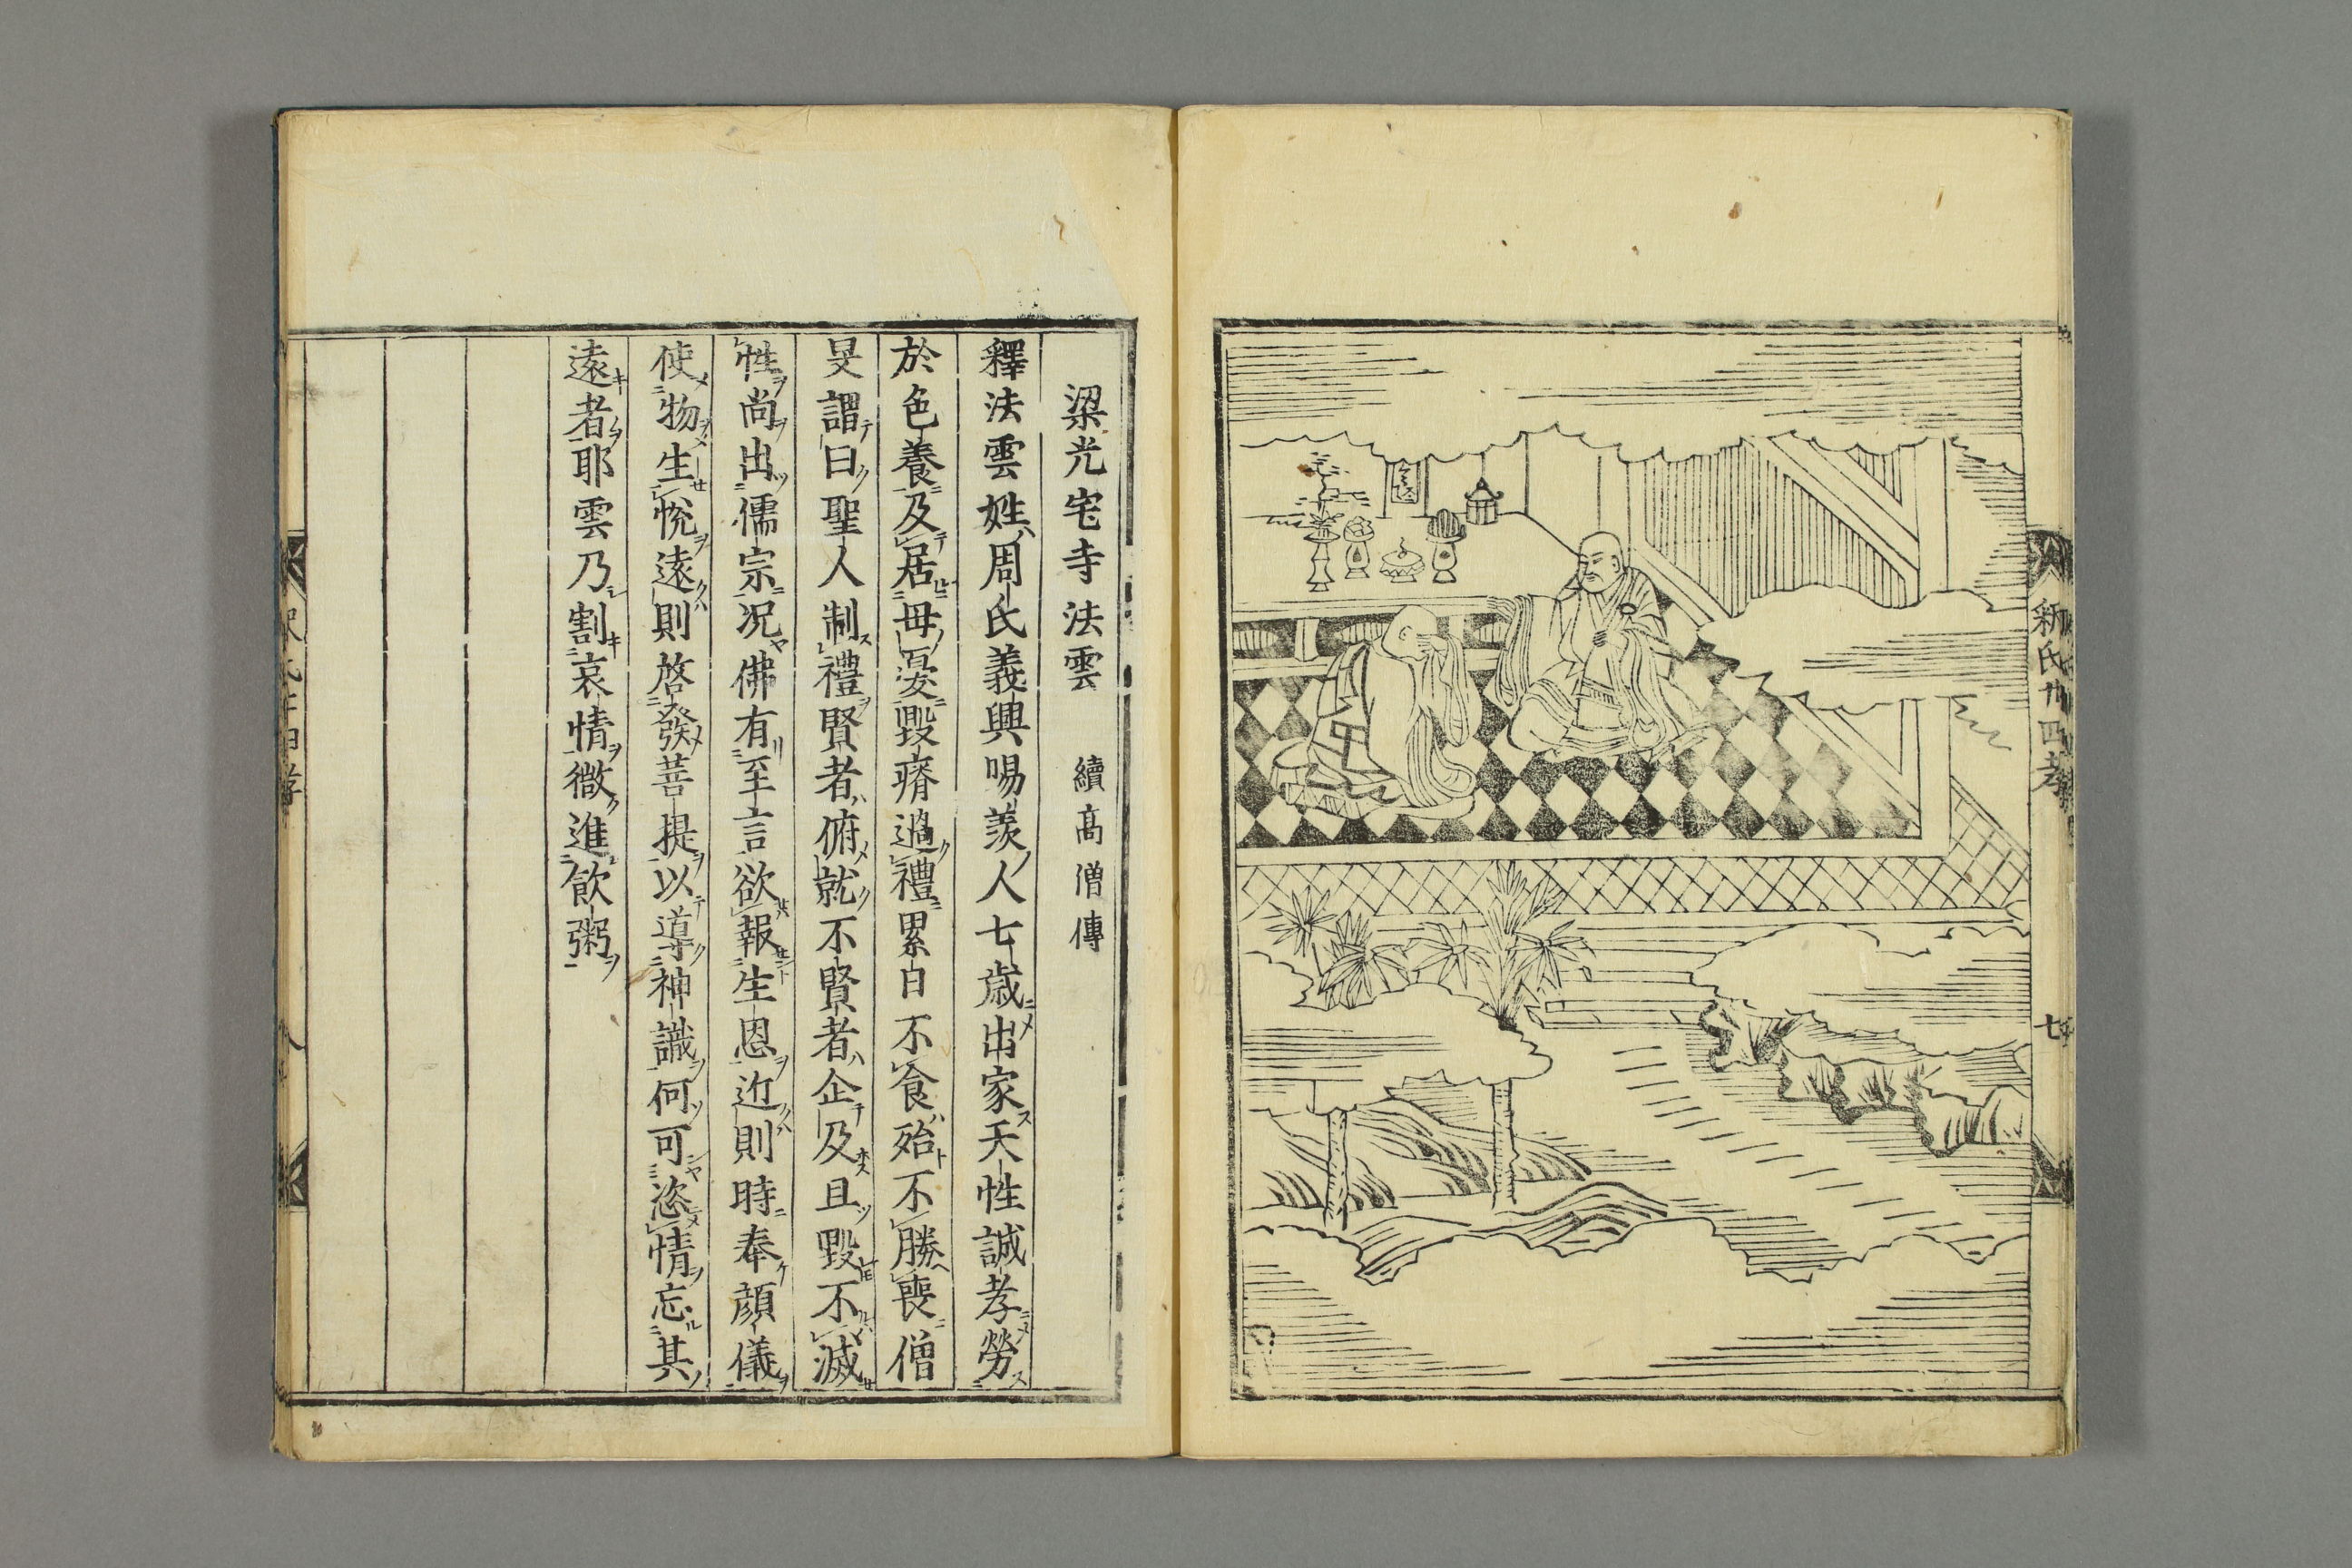 釈氏廿四孝
七
梁光宅寺法雲 續高僧傳
釋法雲姓周氏義興賜羨人七歲出家天性誠孝勞
於色養及居母憂毀瘠過禮累日不食殆不勝喪僧
旻謂曰聖人制禮賢者俯就不賢者企及且毀不滅
性尚出儒宗况佛有至言欲報生恩近則時奉顏儀
使物生悅遠則啓發菩提以導神識何可恣情忘其
遠者耶雲乃割哀情微進飲粥